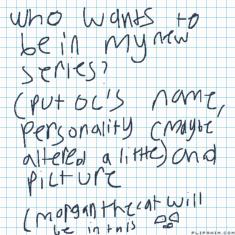 who wants to
be in my new
series?
(put oc's name,
personality (maybe
altered a little) and
picture
(morganthecat will
be in this
FLIPNOTE.COM